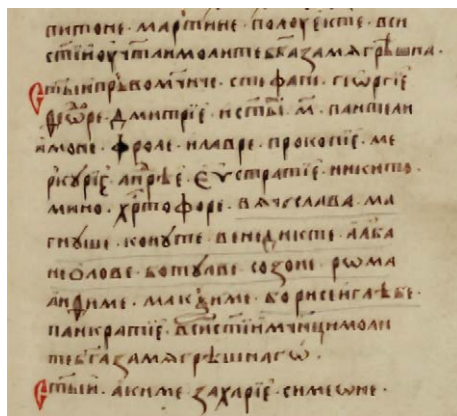 питоне · мартине · полоуекте · вси
ст҃їиоучт҃лимолитеб҃казамѧгрѣшна ·
Ст҃ыипръвомч҃ниче · стефане · гїѡргїе
феѡ҃ре · дмитрїе · и ст҃ыі · м҃ · пантели
ймоне · фроле · илавре · прокопїе · ме
ркурїе · ан҃рѣе · еѵстратїе · никито ·
мино · хр҃тофоре · вѧчеславе · ма
гнуше · конуте · венедикте · алба
не ѻлове · ботулве · созоне · рѡма
анфиме · макѯиме · борисеиглѣбе ·
панкратїе · всист҃їимч҃ницимоли
теб҃газамѧгрѣшнагѡ ·
Ст҃ыи · акиме · захарїе · симеѡне ·